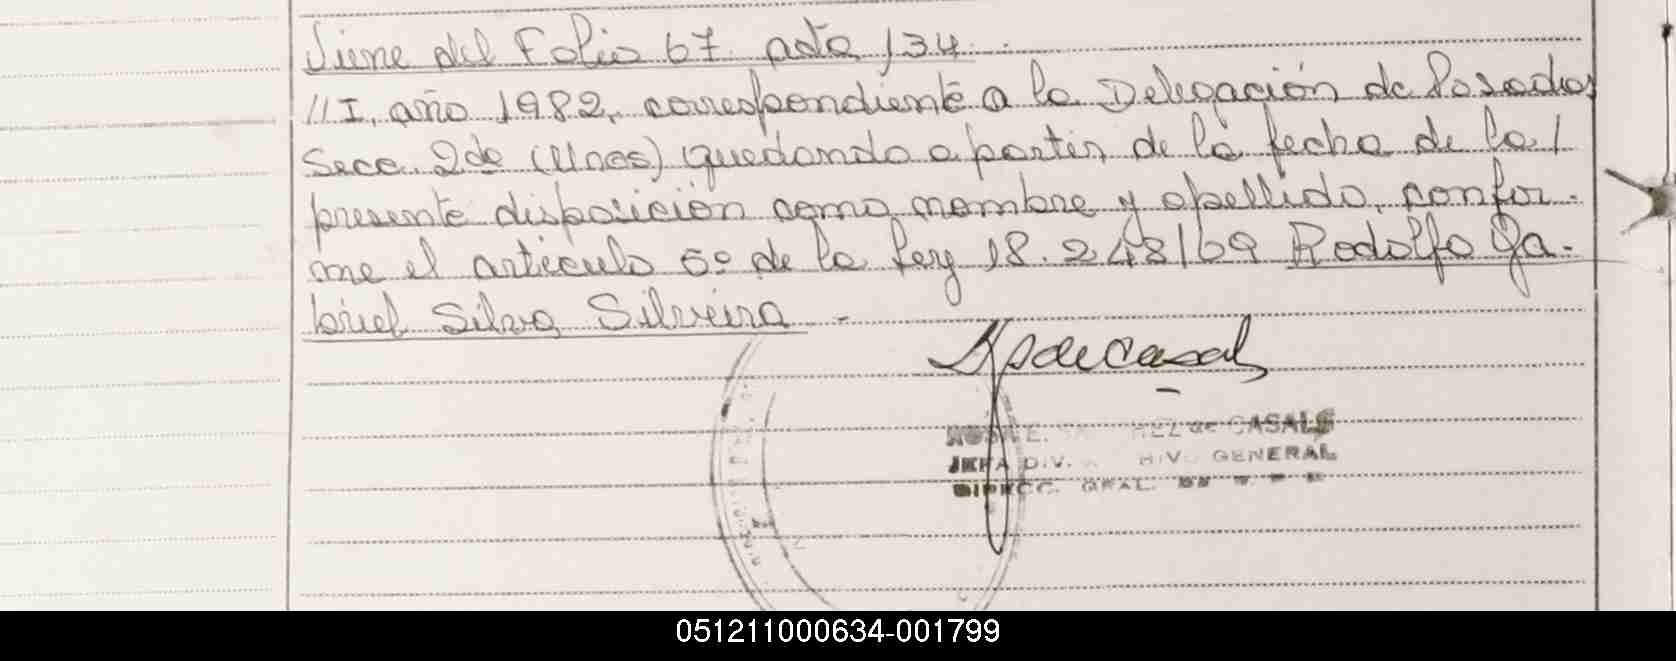 Viene del Folio 67 acta 134.
//I, año 1982, correspondiente a la Delegación de Posadas
Secc. 2da (Mnes) quedando a partir de la fecha de la /
presente disposición como nombre y apellido, confor-
me el artículo 6º de la Ley 18.248/69 Rodolfo Ga-
briel Silva Silveira.-
de CASALS
JEFA DIV. GENERAL
DIRECC. GRAL.
051211000634-001799